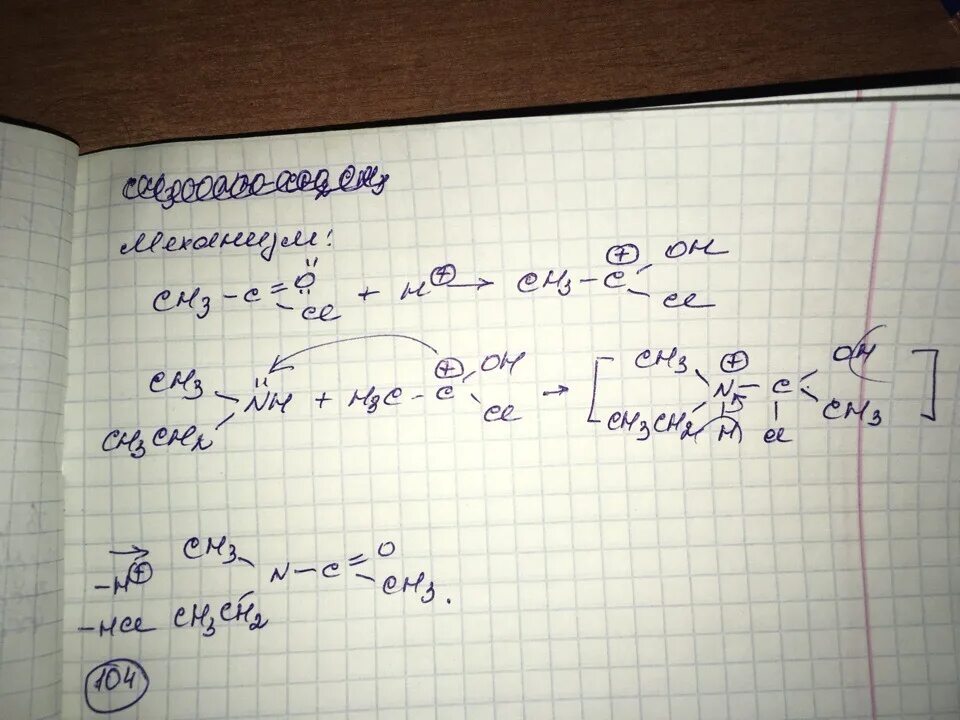 Механизм:
CH₃ - C = Ö - Cl + H⊕ → CH₃ - C⊕ - OH - Cl
CH₃ CH₃CH₂ N̈H + H₃C - C⊕ OH Cl → [ CH₃ CH₃CH₂ N⊕ H - C OH Cl CH₃ ]
→ -H⊕ -HCl CH₃ CH₃CH₂ N - C = O CH₃.
104